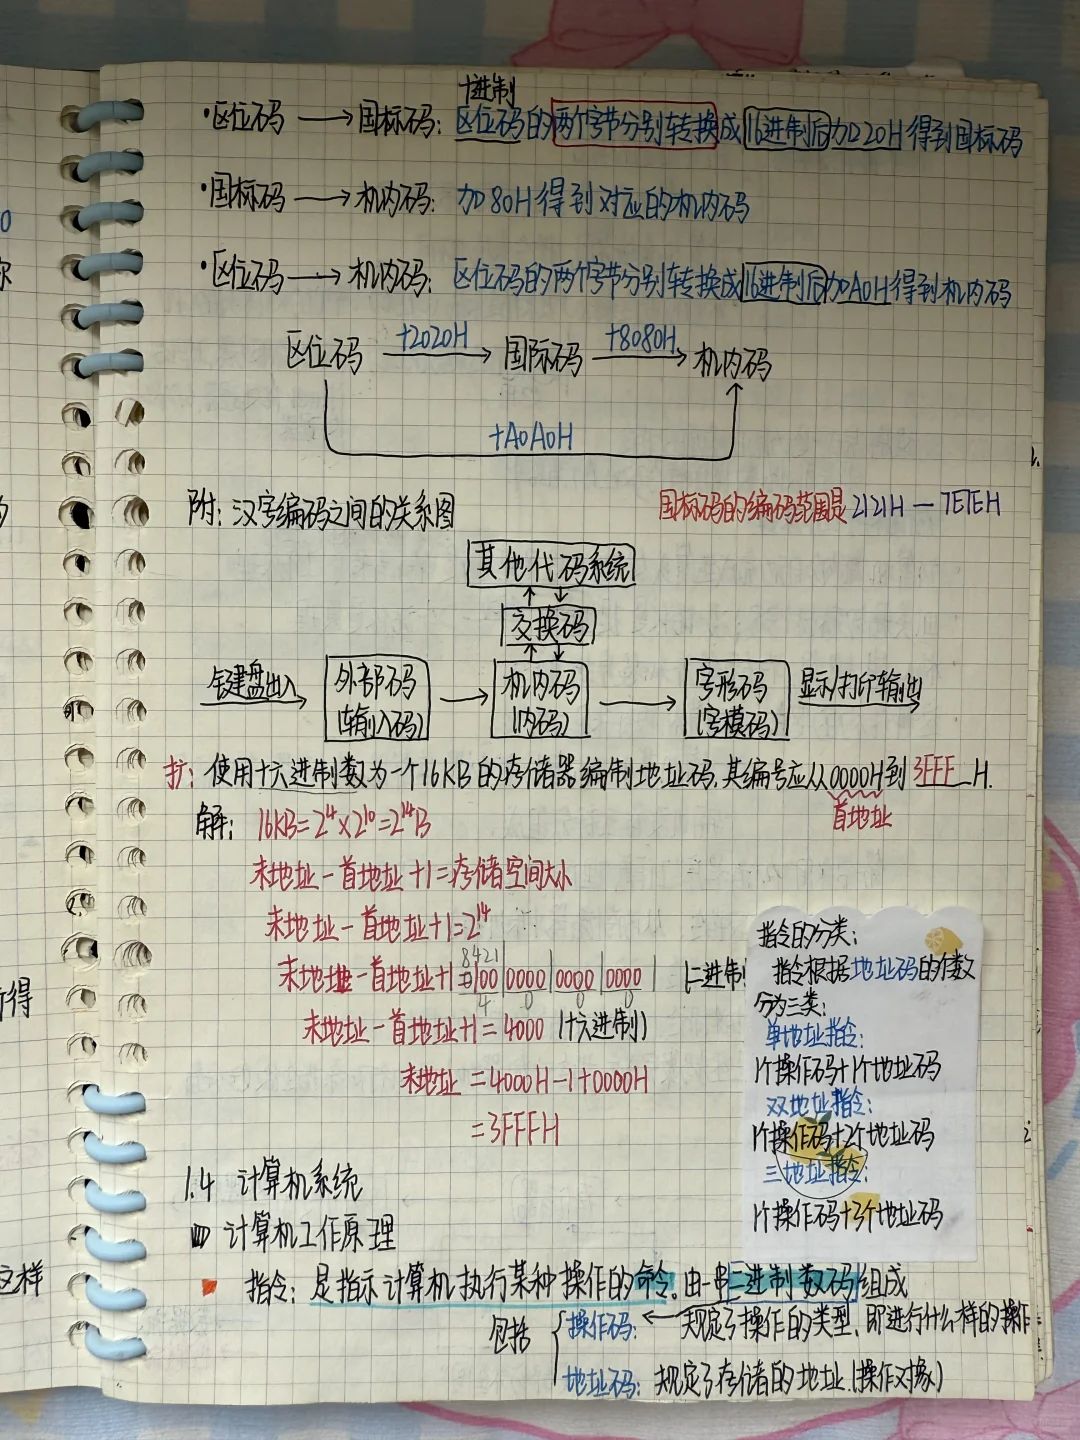 十进制
·区位码 → 国标码: 区位码的两个字节分别转换成16进制后加20H得到国标码
·国标码 → 机内码: 加80H得到对应的机内码
·区位码 → 机内码: 区位码的两个字节分别转换成16进制后加A0H得到机内码
区位码 +2020H → 国际码 +8080H → 机内码
+A0A0H
附: 汉字编码之间的关系图
国标码的编码范围是2121H — 7E7EH
其他代码系统
↑ ↓
交换码
↑ ↓
键盘出入 → 外部码(输入码) → 机内码(内码) → 字形码(字模码) 显示/打印输出 →
扩: 使用十六进制数为一个16KB的存储器编制地址码,其编号应从0000H到3FFF H.
首地址
解: 16KB=2⁴×2¹⁰=2¹⁴B
末地址-首地址+1=存储空间大小
末地址-首地址+1=2¹⁴
8421
末地址-首地址+1=0100|0000|0000|0000| (二进制)
4 0 0 0
末地址-首地址+1=4000 (十六进制)
末地址=4000H-1+0000H
=3FFFH
指令的分类:
指令根据地址码的个数
分为三类:
单地址指令:
1个操作码+1个地址码
双地址指令:
1个操作码+2个地址码
三地址指令:
1个操作码+3个地址码
1.4 计算机系统
计算机工作原理
指令: 是指示计算机执行某种操作的命令.由一串二进制数码组成
包括 { 操作码: ← 规定了操作的类型、即进行什么样的操作
地址码: 规定了存储的地址.(操作对象)
得
这样